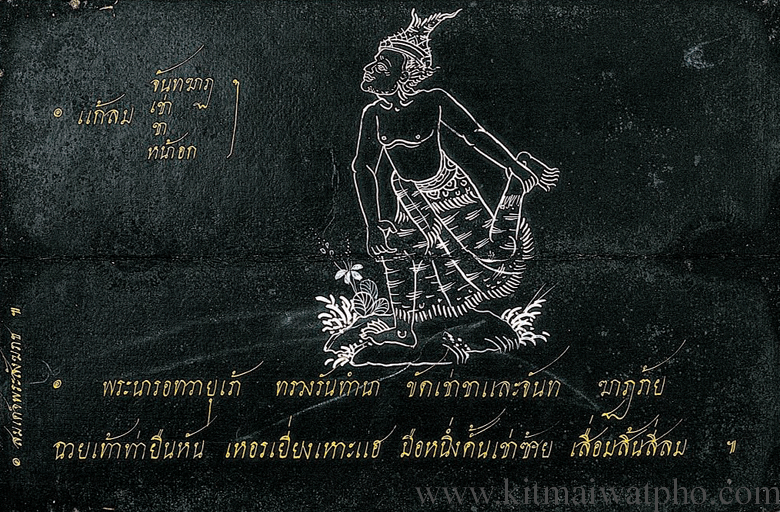 ๏ แก้ลม
จันทฆาฏ
เข่า
ขา
หน้าอก
๏ พระนารอทวายุเร้า ทรวงรันทำนา ขัดเข่าขาและจันท ฆาฏร้าย
ฉวยเท้าท่ายืนหัน เหอรเยี่ยงเหาะแฮ มือหนึ่งค้ำเข่าซ้าย เสื่อมสิ้นสี่ลม ๚
๏ สมเดจพระสังฆราช ๚
www.kitmaiwatpho.com